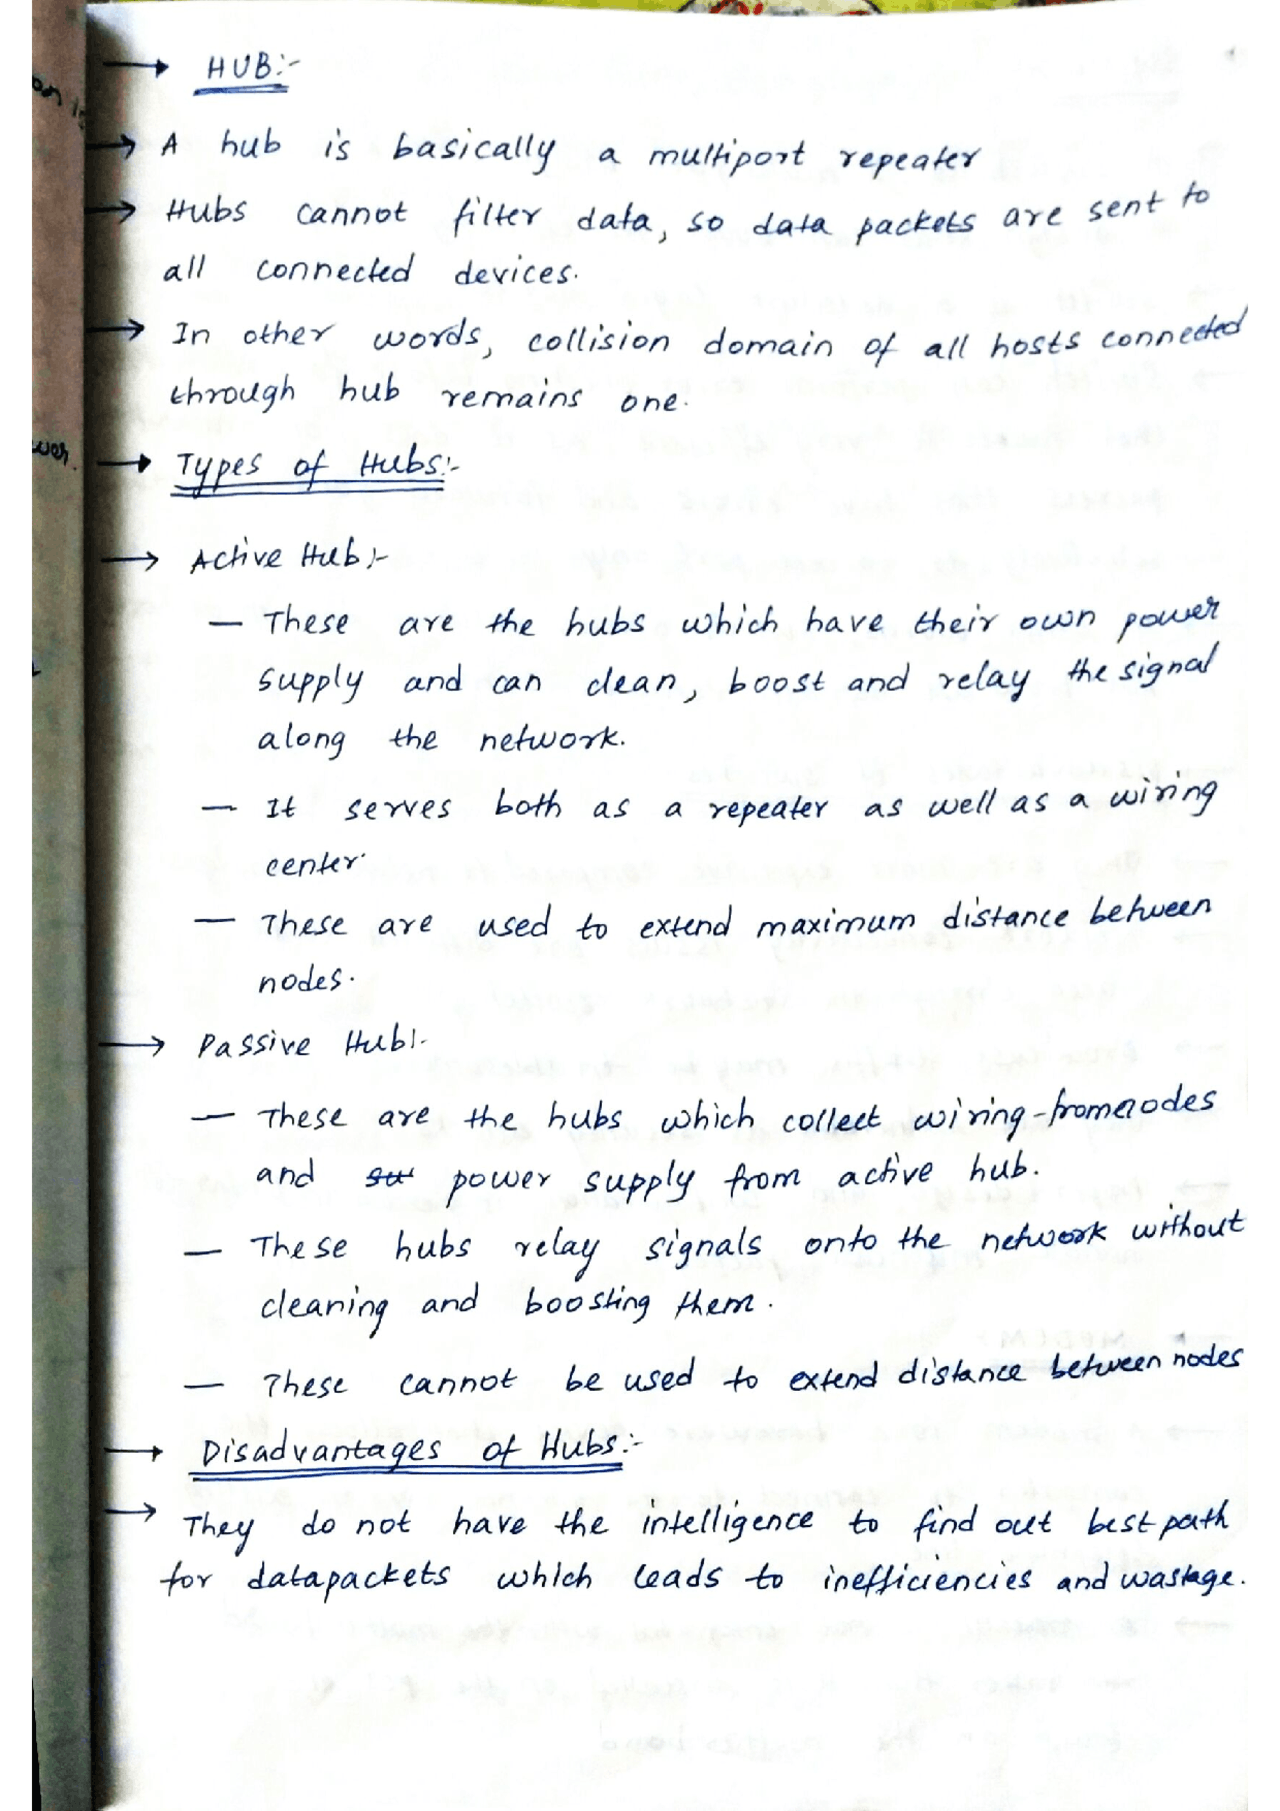 → HUB:-
→ A hub is basically a multiport repeater
→ Hubs cannot filter data, so data packets are sent to
all connected devices.
→ In other words, collision domain of all hosts connected
through hub remains one.
→ Types of Hubs:-
→ Active Hub:-
— These are the hubs which have their own power
supply and can clean, boost and relay the signal
along the network.
— It serves both as a repeater as well as a wiring
center.
— These are used to extend maximum distance between
nodes.
→ Passive Hub:-
— These are the hubs which collect wiring-from nodes
and power supply from active hub.
— These hubs relay signals onto the network without
cleaning and boosting them.
— These cannot be used to extend distance between nodes
→ Disadvantages of Hubs:-
→ They do not have the intelligence to find out best path
for datapackets which leads to inefficiencies and wastage.